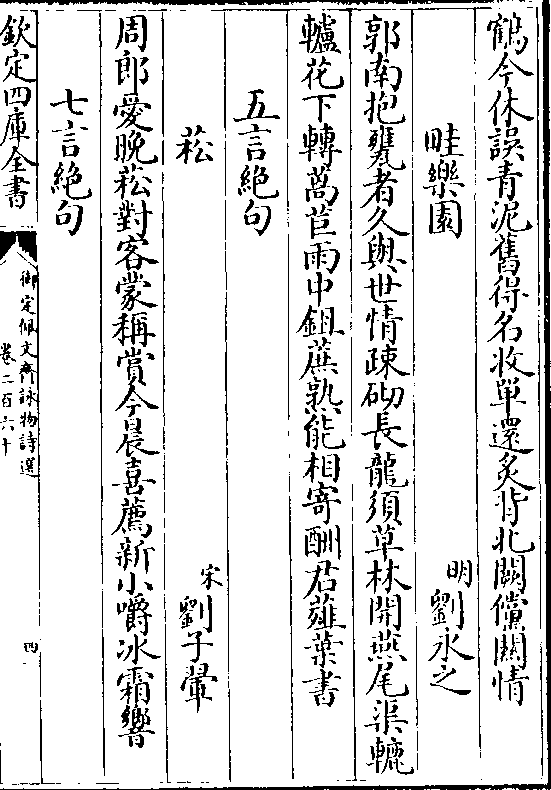 鶴今休誤青泥舊得名收單還炙背北闕儻關情
畦樂園
明劉永之
郭南抱甕者久與世情疎砌長龍須草林開燕尾渠轆
轤花下轉萵苣雨中鉏蔗熟能相寄酬君薤葉書
五言絶句
菘
宋劉子翬
周郎愛晩菘對客蒙稱賞今晨喜薦新小嚼冰霜響
七言絶句
欽定四庫全書
御定佩文齋詠物詩選
卷二百六十
四